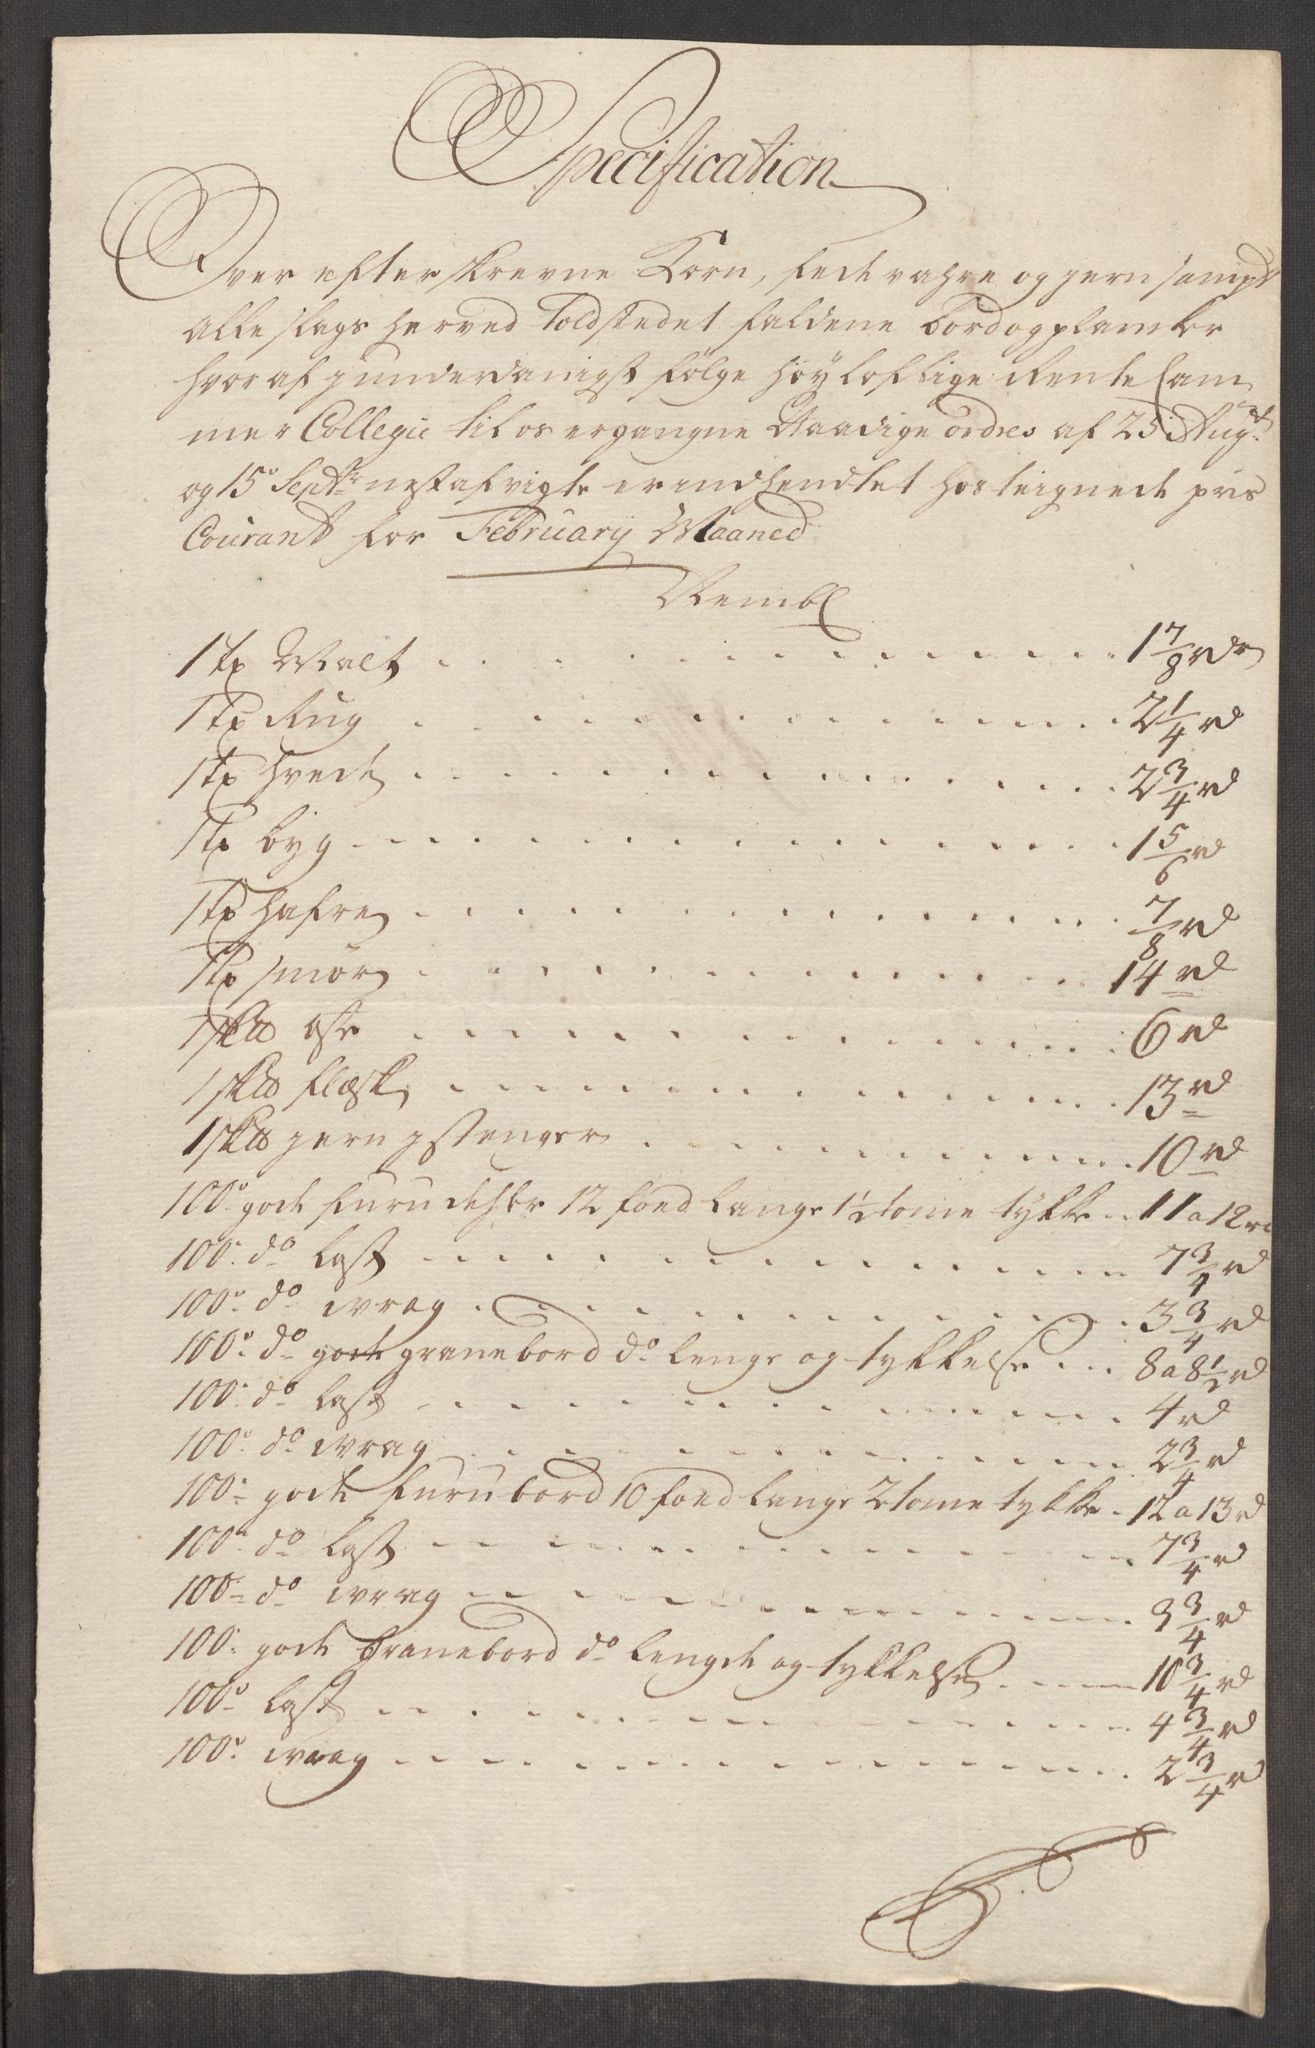 Specification
Over efterskrevne Korn, fede vahre og jern sampt
alle slags herved Toldstedet faldene bord og plancker
hvoraf j underdanigst følge høyloflige Rente Cam
mer Collegie til os ergangne Naadige ordres af 25 Aug:
og 15 Septbr: nestafvigte er indhendtet hosteignede pris
Courant for February Maaned
Nembl
1 tø Malt 1 7/8 rdr
1 tø Rug 2 1/4 rd
1 tø hvede 2 3/4 rd
1 tø byg 1 5/6 rd
1 tø hafre 7/8 rd
1 tø smør 14 rd
1 sk℔ ost 6 rd
1 sk℔ flæsk 13 rd
1 sk℔ jern j stenger 10 rd
100: gode furu dehler 12 foed lange 1 1/2 tome tykke 11 a 12 rd
100: do last 7 3/4 rd
100: do wrag 3 3/4 rd
100: do gode granebord do lenge og tykkelse 8 a 8 1/2 rd
100: do last 4 rd
100: do wrag 2 3/4 rd
100: gode furubord 10 foed lange 2 tome tykke 12 a 13 rd
100: do last 7 3/4 rd
100: do wrag 3 3/4 rd
100: gode Granebord do lengde og tykkelse 10 3/4 rd
100: last 4 3/4 rd
100: wrag 2 3/4 rd